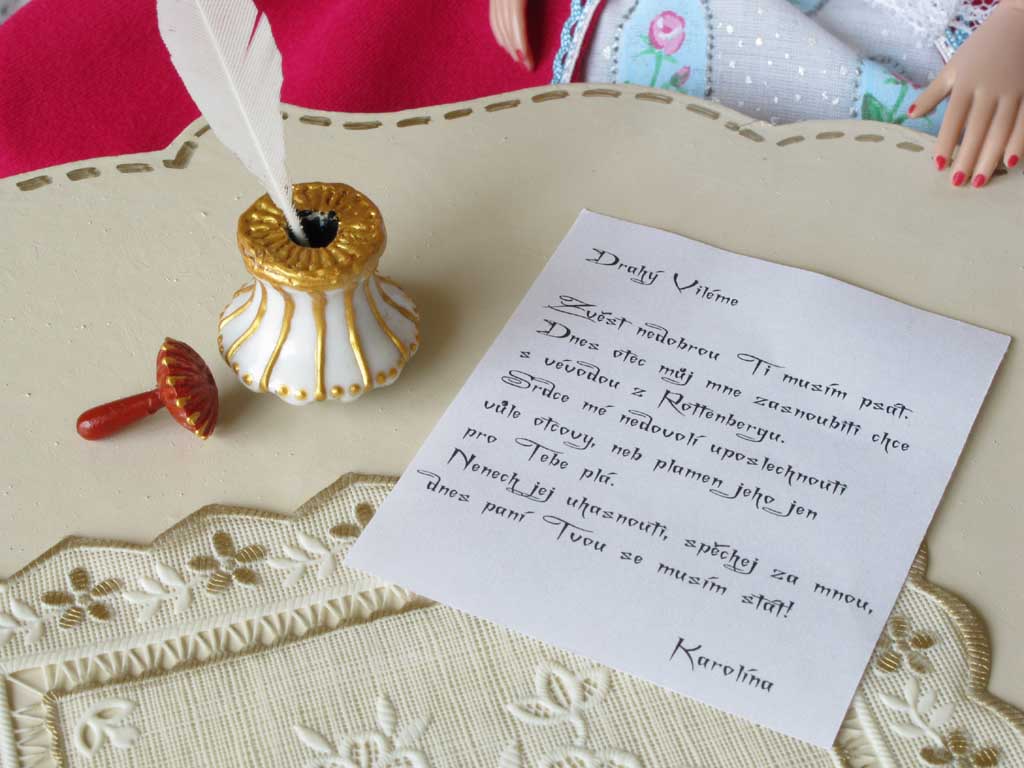 Drahý Viléme
Zvěst nedobrou Ti musím psát.
Dnes otec můj mne zasnoubiti chce
s vévodou z Rottenbergu.
Srdce mé nedovolí uposlechnouti
vůle otcovy, neb plamen jeho jen
pro Tebe plá.
Nenech jej uhasnouti, spěchej za mnou,
dnes paní Tvou se musím stát!
Karolína